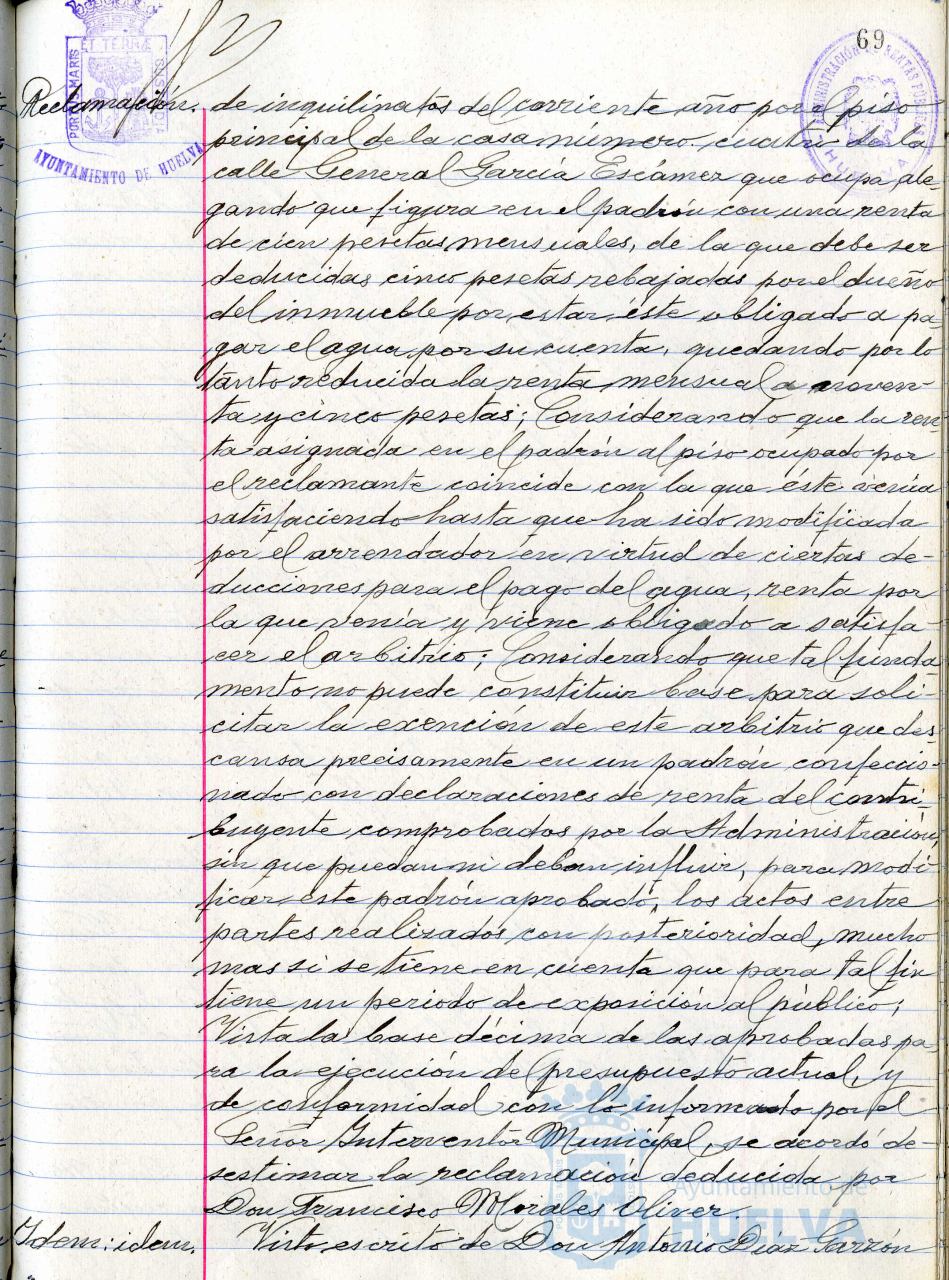 69
PORTUS MARIS ET TERRÆ CUSTODIAS
AYUNTAMIENTO DE HUELVA
ADMINISTRACIÓN DE RENTAS PÚBLICAS
HUELVA
Reclamación. de inquilinatos del corriente año por el piso
principal de la casa número cuatro de la
calle General García Escámez que ocupa, ale-
gando que figura en el padrón con una renta
de cien pesetas mensuales, de la que debe ser
deducidas cinco pesetas rebajadas por el dueño
del inmueble por estar éste obligado a pa-
gar el agua por su cuenta, quedando por lo
tanto reducida la renta mensual a noven-
ta y cinco pesetas; Considerando que la ren-
ta asignada en el padrón al piso ocupado por
el reclamante coincide con la que éste venía
satisfaciendo hasta que ha sido modificada
por el arrendador en virtud de ciertas de-
ducciones para el pago del agua, renta por
la que venía y viene obligado a satisfa-
cer el arbitrio; Considerando que tal funda-
mento no puede constituir base para soli-
citar la exención de este arbitrio que des-
cansa precisamente en un padrón confeccio-
nado con declaraciones de renta del contri-
buyente comprobados por la Administración,
sin que puedan ni deban influir, para modi-
ficar este padrón aprobado, los actos entre
partes realizados con posterioridad, mucho
mas si se tiene en cuenta que para tal fin
tiene un periodo de exposición al público;
Vista la base décima de las aprobadas pa-
ra la ejecución del presupuesto actual, y
de conformidad con lo informado por el
Señor Interventor Municipal, se acordó de-
sestimar la reclamación deducida por
Don Francisco Morales Oliver
Idem: idem. Visto escrito de Don Antonio Díaz Garzón
Ayuntamiento de
HUELVA